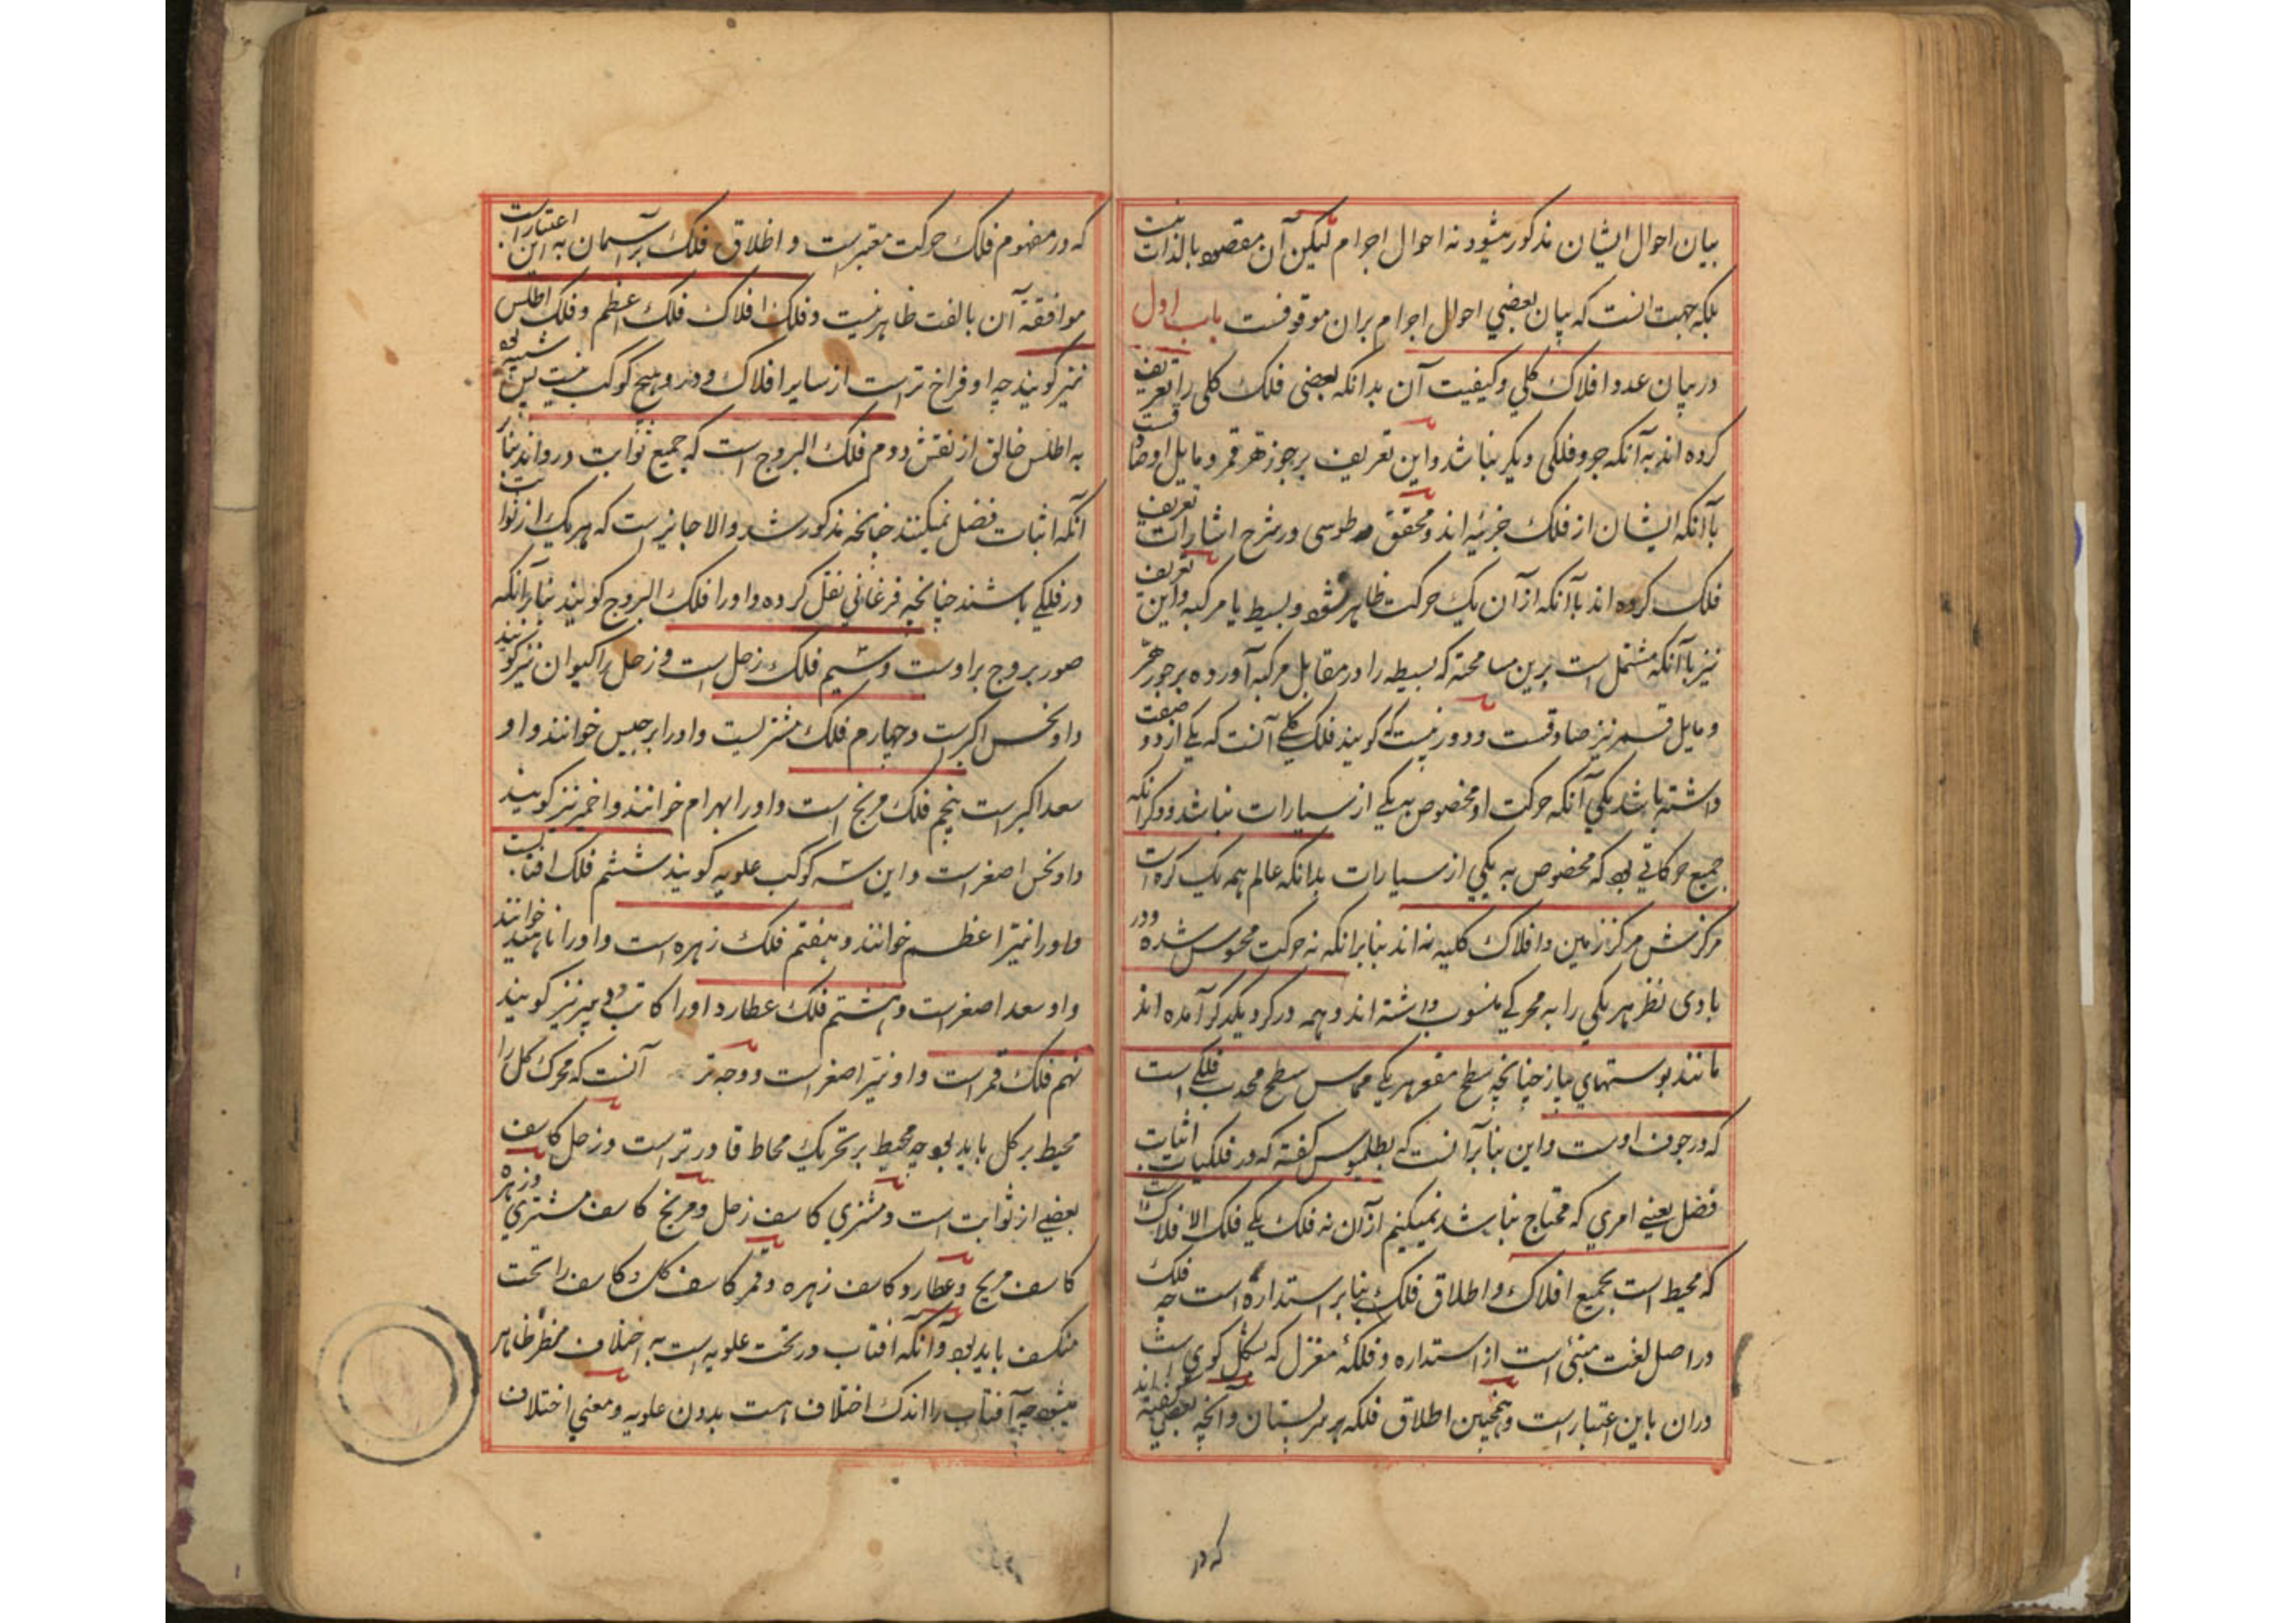 بیان احوال ایشان مذکور میشود نه احوال اجرام لیکن آن مقصود بالذات نیست
بلکه جهت انست که بیان بعضي احوال اجرام بران موقوفست باب اول
در بیان عدد افلاك کلي و کیفیت آن بدانکه بعضی فلك کلی را تعریف
کرده اند به آنکه جزو فلکی دیگر نباشد و این تعریف بر جوزهر قمر و مایل او صادقست
با آنکه ایشان از فلك جزئیه اند و محقق طوسی در شرح اشارات تعریف
فلك کرده اند با آنکه از آن یك حرکت ظاهر شود بسیط یا مرکبه و این تعریف
نیز با آنکه مشتمل است برین مسامحته که بسیطه را در مقابل مرکبه آورده بر جوزهر
و مایل قمر نیز صادقست و دور نیست که کویند فلك کلي آنست که یکي از دو صفت
داشته باشد یکي آنکه حرکت او مخصوص به یکي از سیارات نباشد و دکر انکه
جمیع حرکاتي که مخصوص به یکي از سیارات بدانکه عالم همه یك کره است
مرکزش مرکز زمین و افلاك کلیه نه اند بنابرانکه نه حرکت محسوس شده و در
بادی نظر هر یکي را به محرکي منسوب داشته اند و همه در کرد یکدکر آمده اند
مانند پوستهاي پیاز چنانچه سطح مقعر هر یکي مماس سطح محدب فلکي است
که در جوف اوست و این بنابر آنست که بطلمیوس کفته که در فلکیات اثبات
فضل یعني امري که محتاج نباشد نمیکنیم از آن نه فلك یکي فلك الافلاك است
که محیط است بجمیع افلاك و اطلاق فلك بنابر استداره است چه فلك
در اصل لغت منبئی است از استداره و فلکۀ مغزل که بشکل کوي است
دران باین اعتبار است و همچنین اطلاق فلکه بر سر پستان و انچه بعضي کفته اند
که در
که در مفهوم فلك حرکت معتبر است و اطلاق فلك بر آسمان به این اعتبار است
موافقۀ آن بالغت ظاهر نیست و فلك افلاك فلك اعظم و فلك اطلس
نیز کویند چه او فراخ تر است از سایر افلاك و در و هیچ کوکب نیست پس شبیه بود
به اطلس خالق از نقش دوم فلك البروج است که جمیع ثوابت درو اند بنابر
آنکه اثبات فضل نمیکنند چنانچه مذکور شد و الا جایز است که هر یك از ثوابت
در فلکي باشند چنانچه فرغاني نقل کرده و او را فلك البروج کویند بنابرانکه
صور بروج بر اوست و سیم فلك زحل است و زحل را کیوان نیز کویند
و او نحس اکبر است و چهارم فلك مشتریست و او را برجیس خوانند و او
سعد اکبر است پنجم فلك مریخ است و او را بهرام خوانند و احمر نیز کویند
و او نحس اصغر است و این سه کوکب علویه کویند ششم فلك افتابست
و او را نیر اعظم خوانند و هفتم فلك زهره است و او را ناهید خوانند
و او سعد اصغر است و هشتم فلك عطارد او را کاتب و دبیر نیز کویند
نهم فلك قمر است و او نیر اصغر است و وجه تر آنست که محرك کل را
محیط بر کل باید بود چه محیط بر تحریك محاط قادر تر است و زحل کاسف
بعضي از ثوابت است و مشتري کاسف زحل و مریخ کاسف مشتري و زهره
کاسف مریخ و عطارد کاسف زهره و قمر کاسف کل و کاسف را تحت
منکسف باید بود و آنکه افتاب در تحت علویه است به اختلاف منظر ظاهر
میشود چه آفتاب را اندك اختلاف هست بدون علویه و معني اختلاف